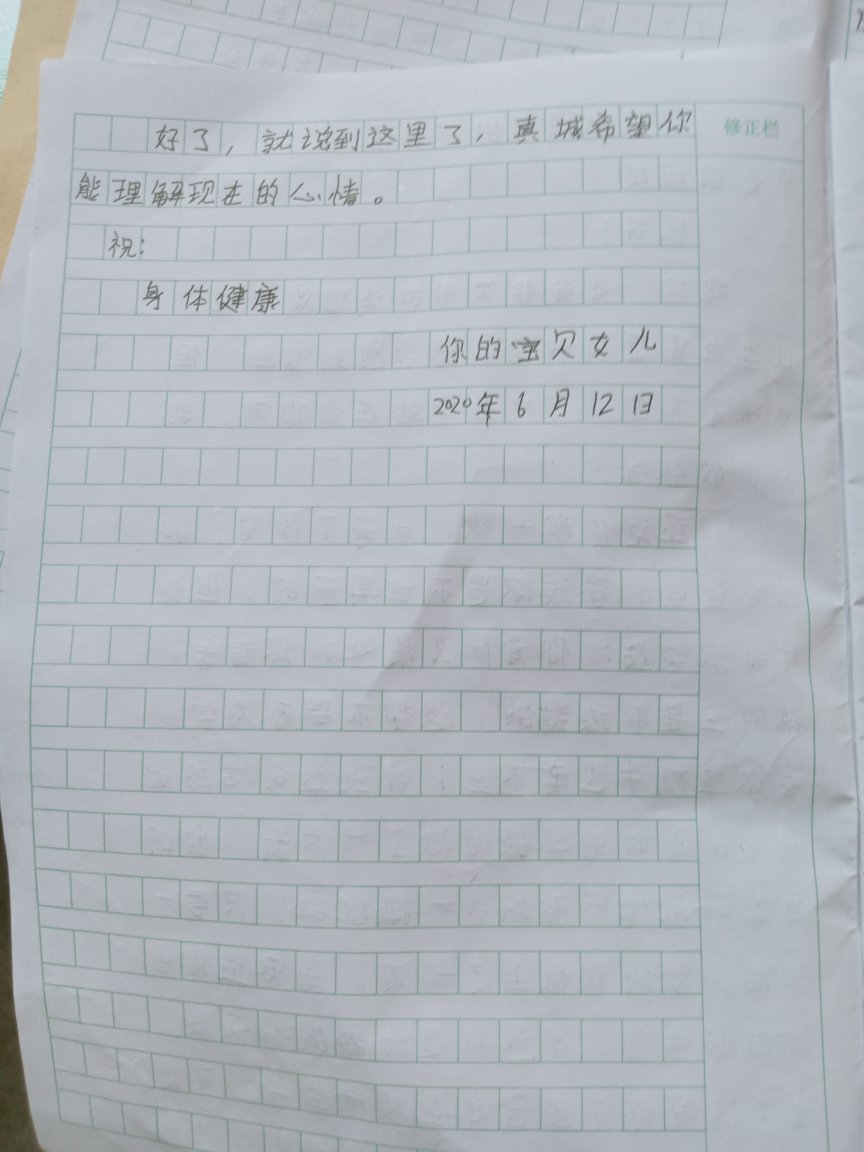 好了，就说到这里了，真城希望你
修正栏
能理解现在的心情。
祝：
身体健康
你的宝贝女儿
2020年6月12日